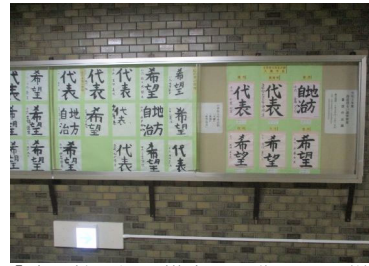 希望
希望
代表
代表
代表
希望
希望
希望
希望
地方
自治
希望
代表
地方
自治
希望
希望
希望
希望
代表
希望
代表
代表
代表
地方
自治
希望
希望
希望